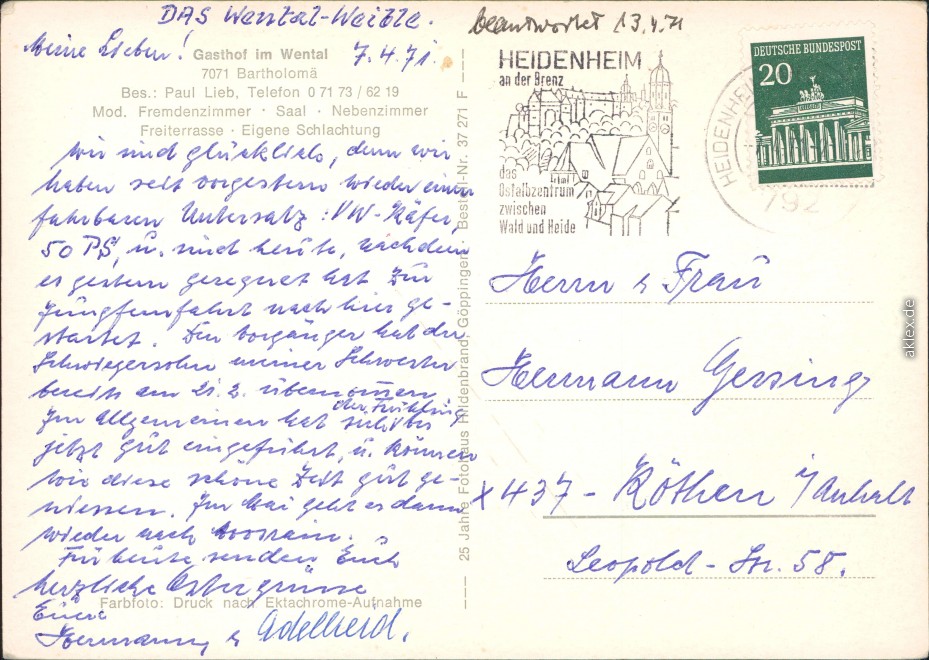 DAS Wental-Weible.
beantwortet 13.4.71
Meine Lieben!
7.4.71.
Gasthof im Wental
7071 Bartholomä
Bes.: Paul Lieb, Telefon 0 71 73 / 62 19
Mod. Fremdenzimmer · Saal · Nebenzimmer
Freiterrasse · Eigene Schlachtung
Wir sind glücklich, denn wir
haben seit vorgestern wieder einen
fahrbaren Untersatz: VW-Käfer,
50 PS, u. sind heute, nachdem
es gestern geregnet hat zur
Jungfernfahrt nach hier ge-
startet. Den Vorgänger hat der
Schwiegersohn meiner Schwester
bereits am 21.2. übernommen.
Im Allgemeinen hat sich der Frühling bis
jetzt gut eingeführt, u. können
wir diese schöne Zeit gut ge-
niessen. Im Mai geht es dann
wieder nach
Für heute senden Euch
herzliche Ostergrüsse
Farbfoto: Druck nach Ektachrome-Aufnahme
Eure
Hermann & Adelheid.
25 Jahre Fotohaus Hildenbrand, Göppingen · Bestell-Nr. 37 271 F
HEIDENHEIM
an der Brenz
das
Ostalbzentrum
zwischen
Wald und Heide
HEIDENHEIM
792
DEUTSCHE BUNDESPOST
20
Herrn & Frau
Hermann Gersing
x 437 - Köthen i/Anhalt
Leopold-Str. 58.
aklex.de